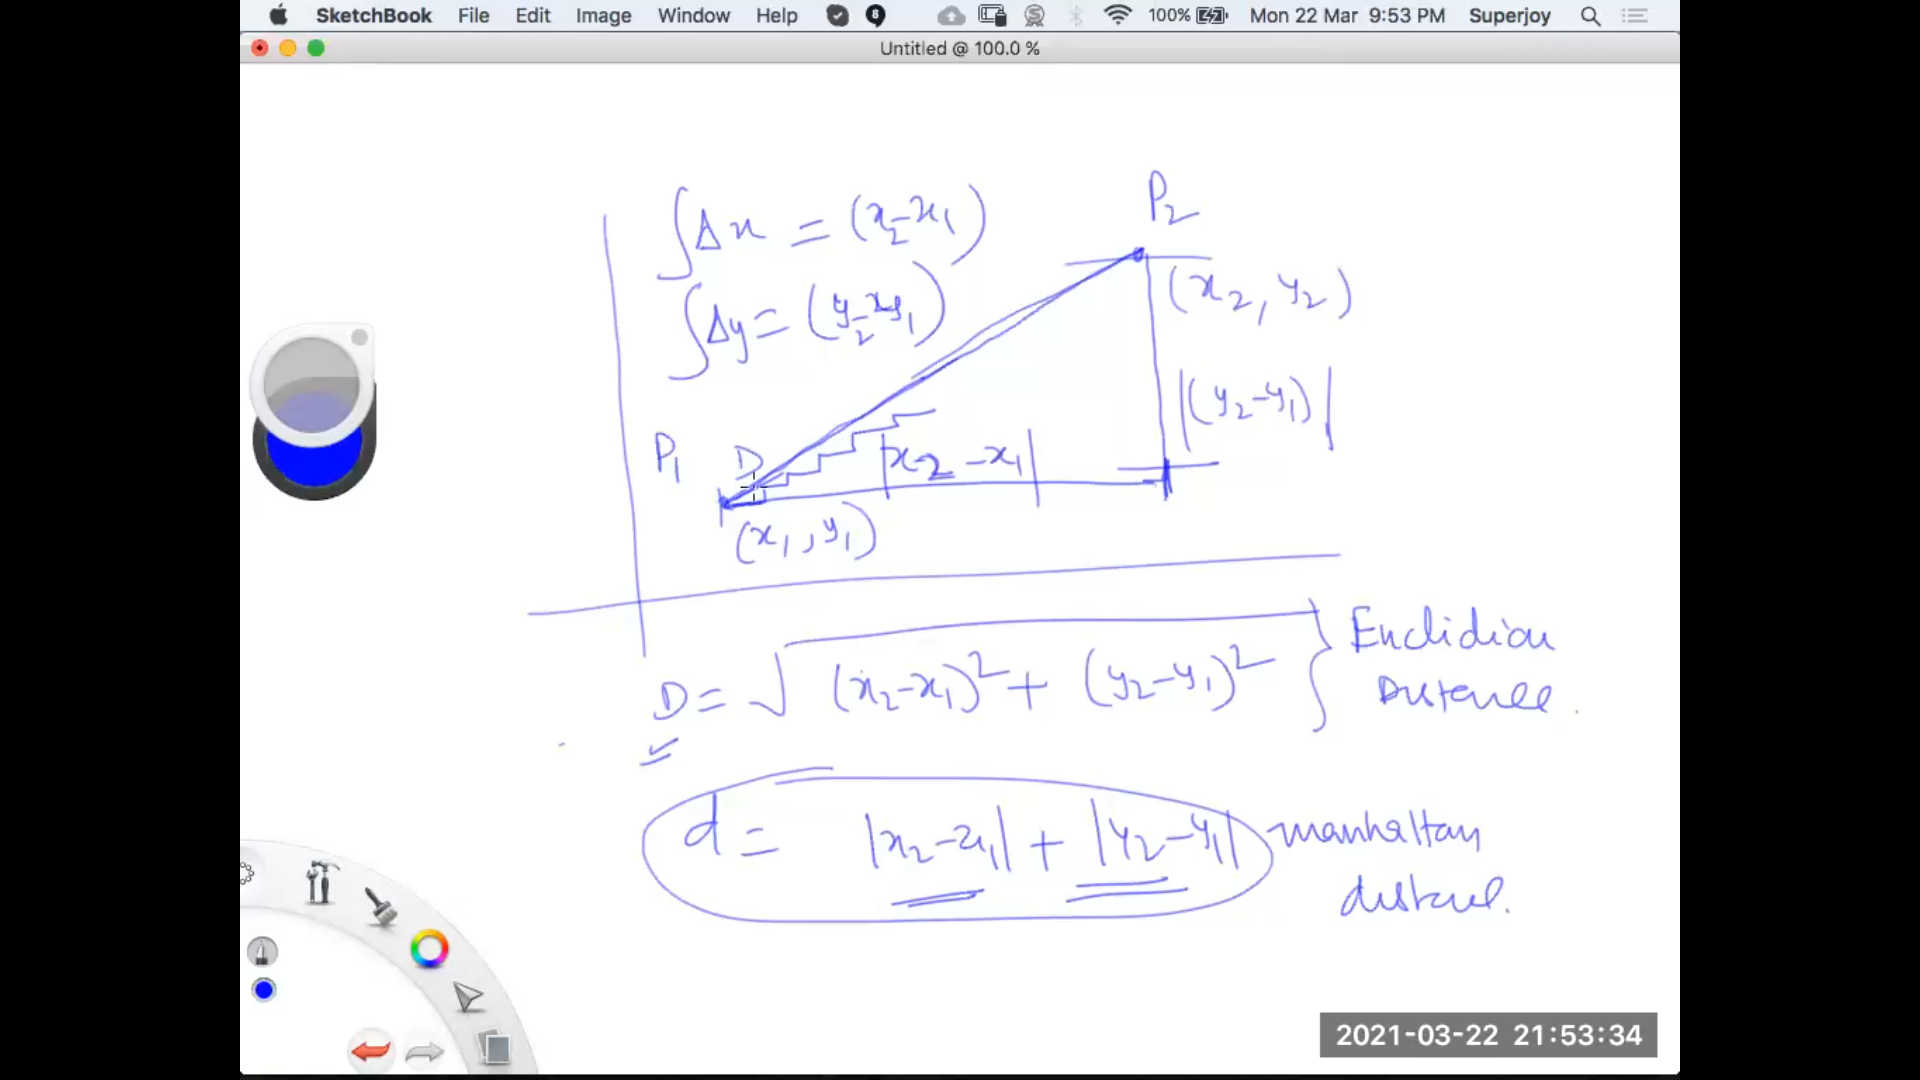 SketchBook File Edit Image Window Help 8 100% Mon 22 Mar 9:53 PM Superjoy
Untitled @ 100.0 %
∫Δx = (x₂-x₁)
P₂
(x₂, y₂)
∫Δy = (y₂-y₁)
|(y₂-y₁)|
P₁ D |x₂-x₁|
(x₁, y₁)
D = √(x₂-x₁)² + (y₂-y₁)² } Euclidian
Distance.
d = |x₂-x₁| + |y₂-y₁| manhattan
distance.
2021-03-22 21:53:34